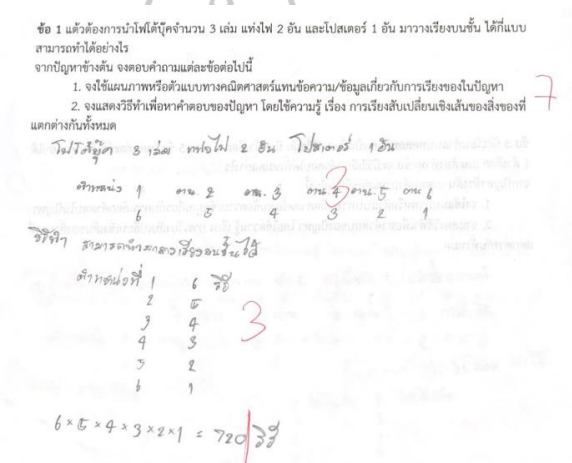 ข้อ 1 แต้วต้องการนำโฟโต้บุ๊คจำนวน 3 เล่ม แท่งไฟ 2 อัน และโปสเตอร์ 1 อัน มาวางเรียงบนชั้น ได้กี่แบบ
สามารถทำได้อย่างไร
จากปัญหาข้างต้น จงตอบคำถามแต่ละข้อต่อไปนี้
1. จงใช้แผนภาพหรือตัวแบบทางคณิตศาสตร์แทนข้อความ/ข้อมูลเกี่ยวกับการเรียงของในปัญหา
7
2. จงแสดงวิธีทำเพื่อหาคำตอบของปัญหา โดยใช้ความรู้ เรื่อง การเรียงสับเปลี่ยนเชิงเส้นของสิ่งของที่
แตกต่างกันทั้งหมด
โฟโต้บุ๊ค 3 เล่ม แท่งไฟ 2 อัน โปสเตอร์ 1 อัน
ตำแหน่ง 1 ตน. 2 ตน. 3 ตน. 4 ตน. 5 ตน. 6
3
6 5 4 3 2 1
วิธีทำ สามารถนำมาวางเรียงบนชั้นได้
ตำแหน่งที่ 1 6 วิธี
2 5
3 4
4 3
5 2
6 1
3
6 × 5 × 4 × 3 × 2 × 1 = 720 วิธี
1